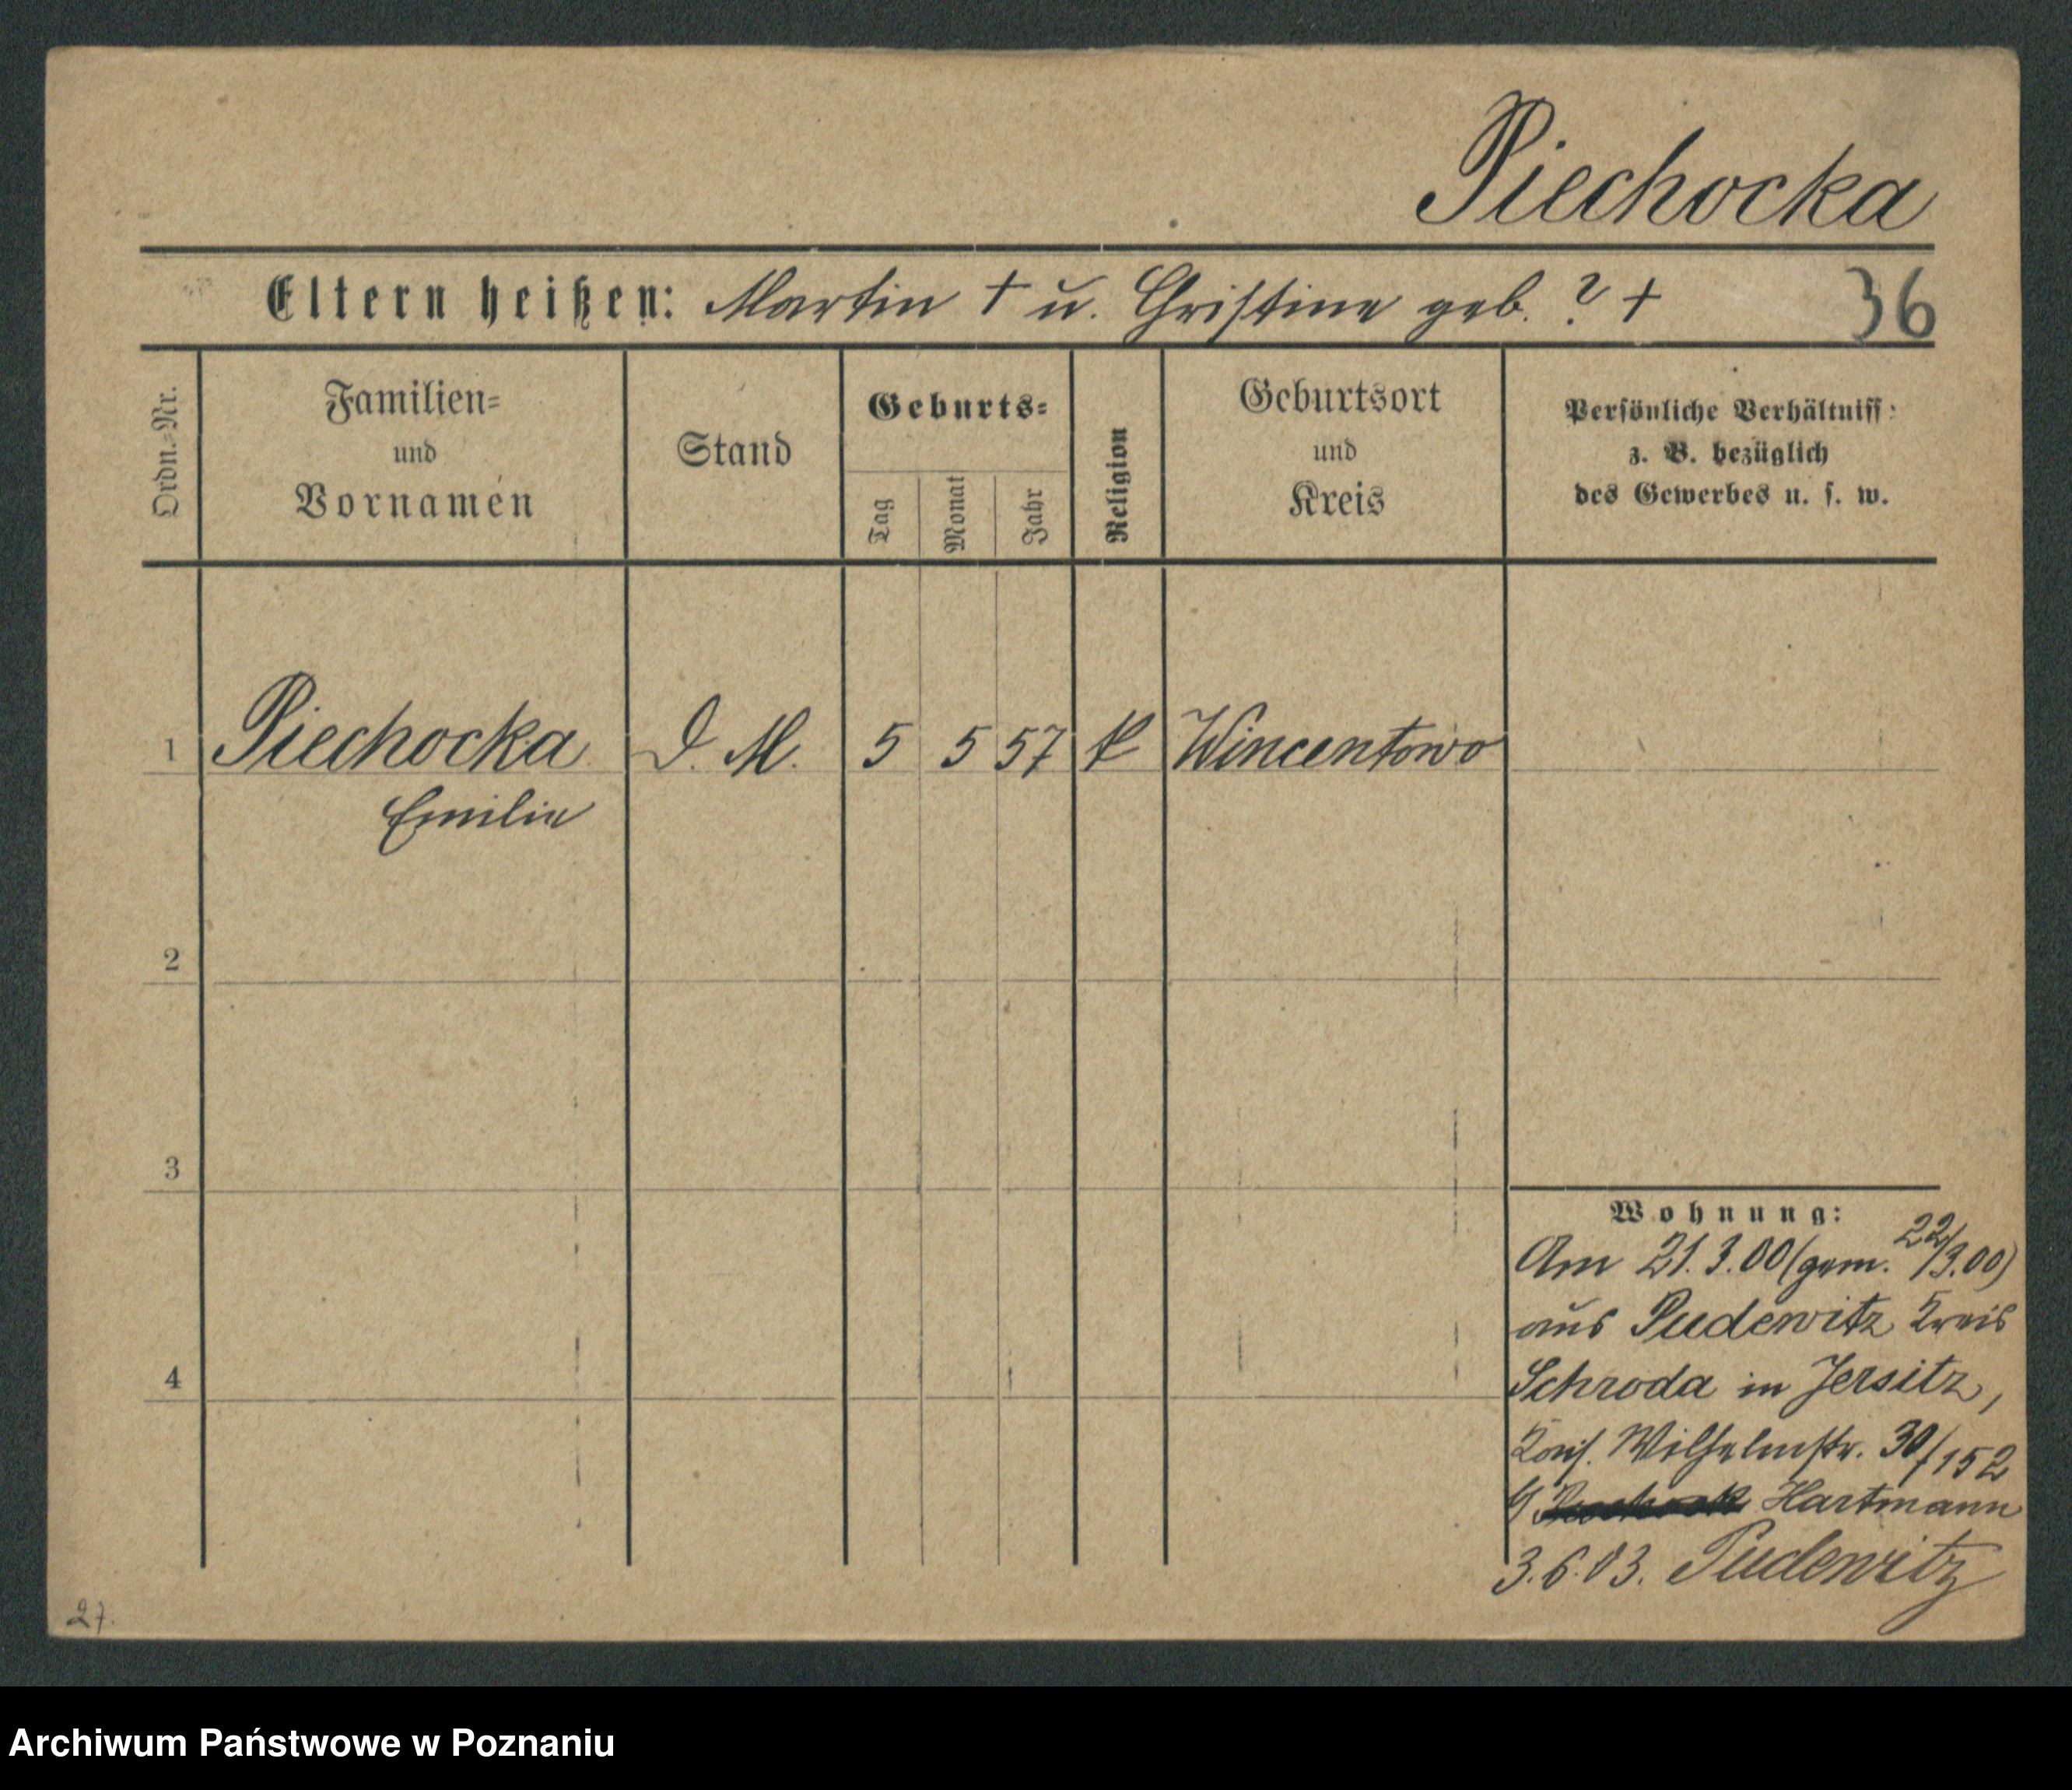 Piechocka
Eltern heißen: Martin + u. Christine geb. ? +
36
Ordn.-Nr.
Familien-
und
Vornamen
Stand
Geburts-
Tag
Monat
Jahr
Religion
Geburtsort
und
Kreis
Persönliche Verhältniss:
z. B. bezüglich
des Gewerbes u. s. w.
1 Piechocka D. M. 5 5 57 k Wincentowo
Emilie
2
3
4
Wohnung:
Am 21.3.00 (gem. 22/3.00)
aus Pudewitz Kreis
Schroda in Jersitz,
Kais. Wilhelmstr. 30/152
b/ Hartmann
3.6.03. Pudewitz
27.
Archiwum Państwowe w Poznaniu